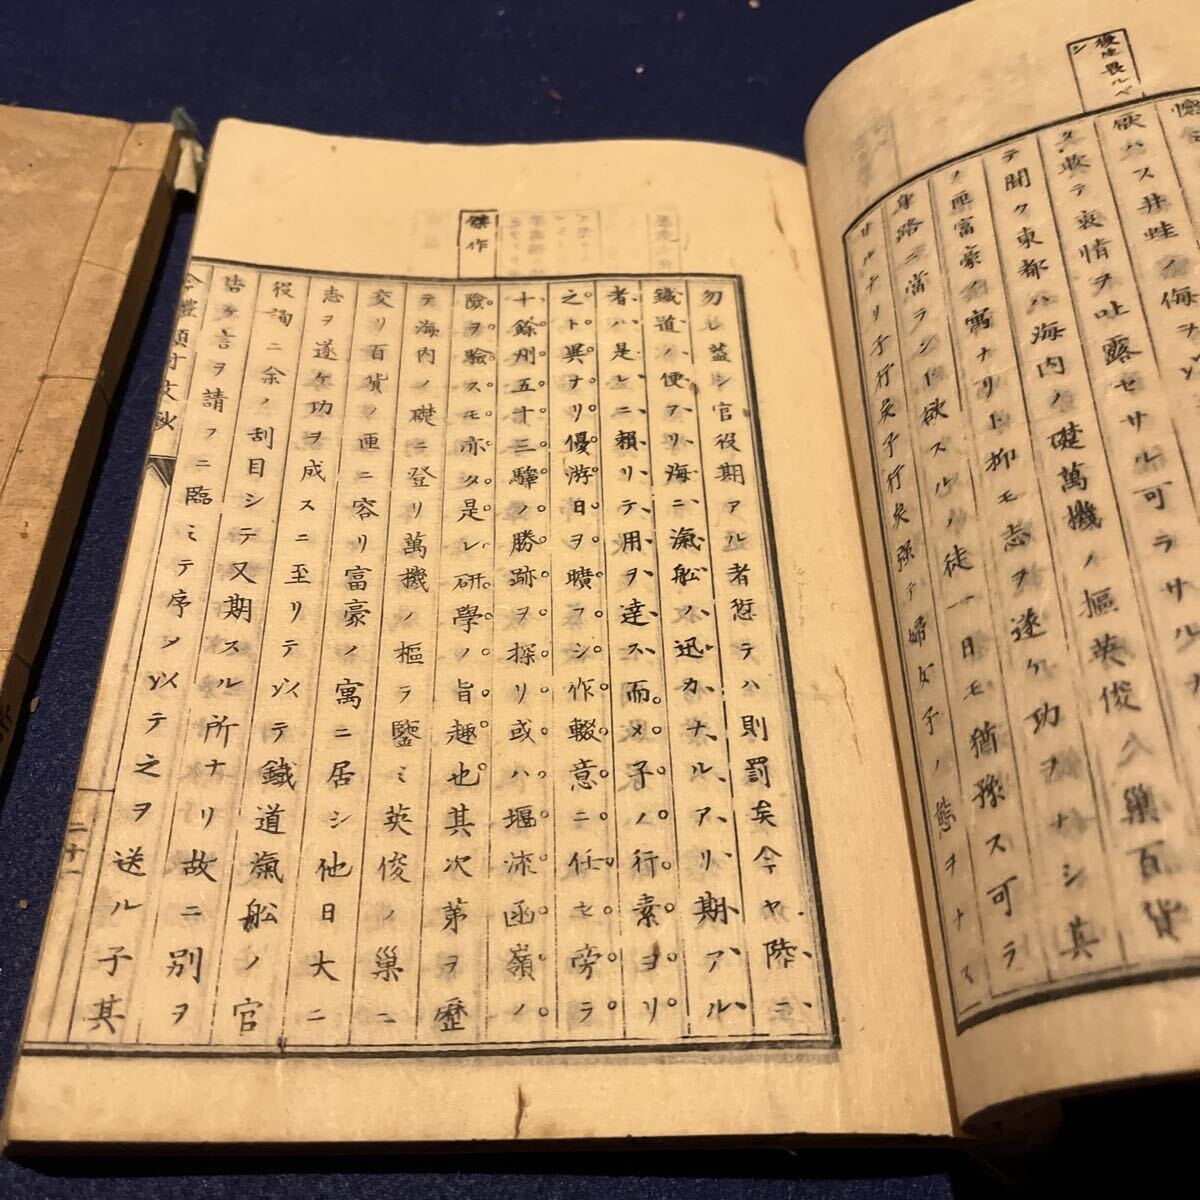 後生畏ルベ
シ
欲ハス井蛙ノ侮ヲ以
テ衷情ヲ吐露セサル可ラサル
テ聞ク東都ハ海内ノ礎萬機ノ樞英俊ノ巢百貨
ノ匣富豪ノ寓ナリト抑モ志ヲ遂ケ功ヲナシ其
身路ニ當ラント欲スルノ徒一日モ猶豫ス可ラ
サルナリ子行矣子行矣強テ婦女子ノ態ヲナス
傑作
勿レ蓋シ官役期アル者愆テハ則罰矣今ヤ陸ニ
鐵道ノ便アリ海ニ滊舩ノ迅カナルアリ期アル
者ハ是レニ賴リテ用ヲ達ス而メ子ノ行素ヨリ
之ト異ナリ優游日ヲ曠フシ作輟意ニ任セ旁ラ
十餘州五十三驛ノ勝跡ヲ探リ或ハ堰流函嶺ノ
險ヲ驗スモ亦タ是レ研學ノ旨趣也其次第ヲ歷
テ海内ノ礎ニ登リ萬機ノ樞ヲ鑒ミ英俊ノ巢ニ
交リ百貨ノ匣ニ容リ富豪ノ寓ニ居シ他日大ニ
志ヲ遂ケ功ヲ成スニ至リテ以テ鐵道滊舩ノ官
役詢ニ余ノ刮目シテ又期スル所ナリ故ニ別ヲ
告ケ言ヲ請フニ臨ミテ序シ以テ之ヲ送ル子其
二十一